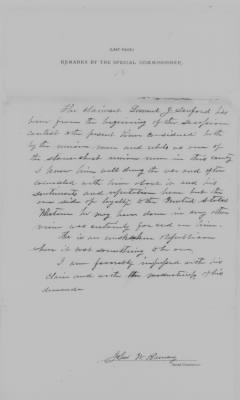 (LAST PAGE.)
REMARKS BY THE SPECIAL COMMISSIONER.
The claimant Lemuel J. Sanford has
been from the beginning of the
contest to the present time considered both
by the union men and rebels as one of
the staunchest union men in this county
I knew him well during the war and often
counseled with him about it and his
sentiments and reputation have but the
one side of loyalty to the United States
Whatever he may have done in any other
view was entirely forced on him.
He is an Republican
when it cost something to be one,
I am favorably impressed with his
claim and with the of his
demands
John W.
Special Commissioner.